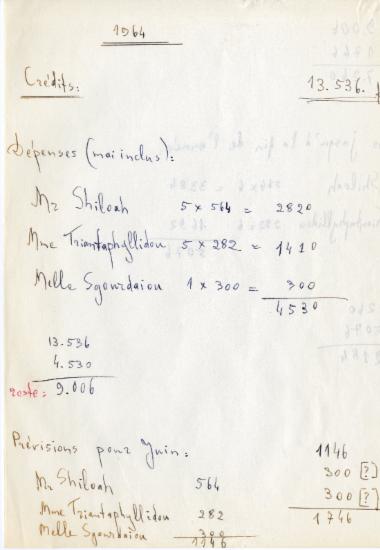 1964
Crédits: 13.536.
Dépenses (mai inclus):
Mr Shiloah 5 x 564 = 2820
Mme Triantaphyllidou 5 x 282 = 1410
Melle Sgourdaiou 1 x 300 = 300
4530
13.536
4.530
reste: 9.006
Prévisions pour Juin: 1146
Mr Shiloah 564 300 [?]
Mme Triantaphyllidou 282 300 [?]
Melle Sgourdaiou 300 1746
1146